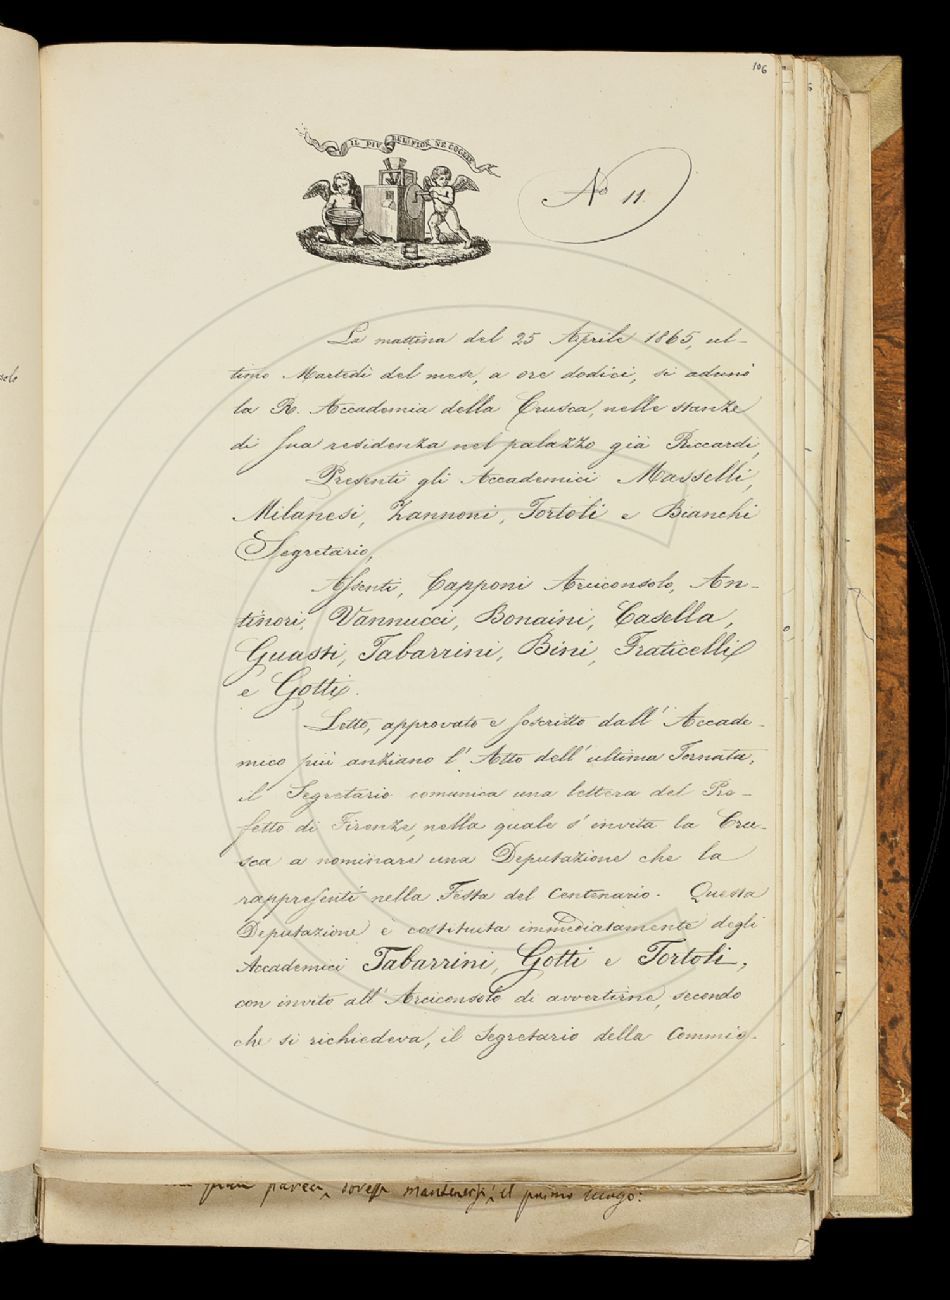 106
IL PIÙ BEL FIOR NE COGLIE
No 11.
La mattina del 25 Aprile 1865, ul-
timo Martedì del mese, a ore dodici, si adunò
la R. Accademia della Crusca, nelle stanze
di sua residenza nel palazzo già Riccardi,
Presenti gli Accademici Masselli,
Milanesi, Zannoni, Tortoli e Bianchi
Segretario,
Assenti, Capponi Arciconsolo, An-
tinori, Vannucci, Bonaini, Casella,
Guasti, Tabarrini, Bini, Fraticelli
e Gotti.
Letto, approvato e soscritto dall' Accade-
mico più anziano l' Atto dell' ultima Tornata,
il Segretario comunica una lettera del Pre-
fetto di Firenze, nella quale s' invita la Cru-
sca a nominare una Deputazione che la
rappresenti nella Festa del Centenario. Questa
Deputazione è costituita immediatamente degli
Accademici Tabarrini, Gotti e Tortoli,
con invito all' Arciconsolo di avvertirne, secondo
che si richiedeva, il Segretario della Commis-
parea, dovesse mantenersi il primo luogo: